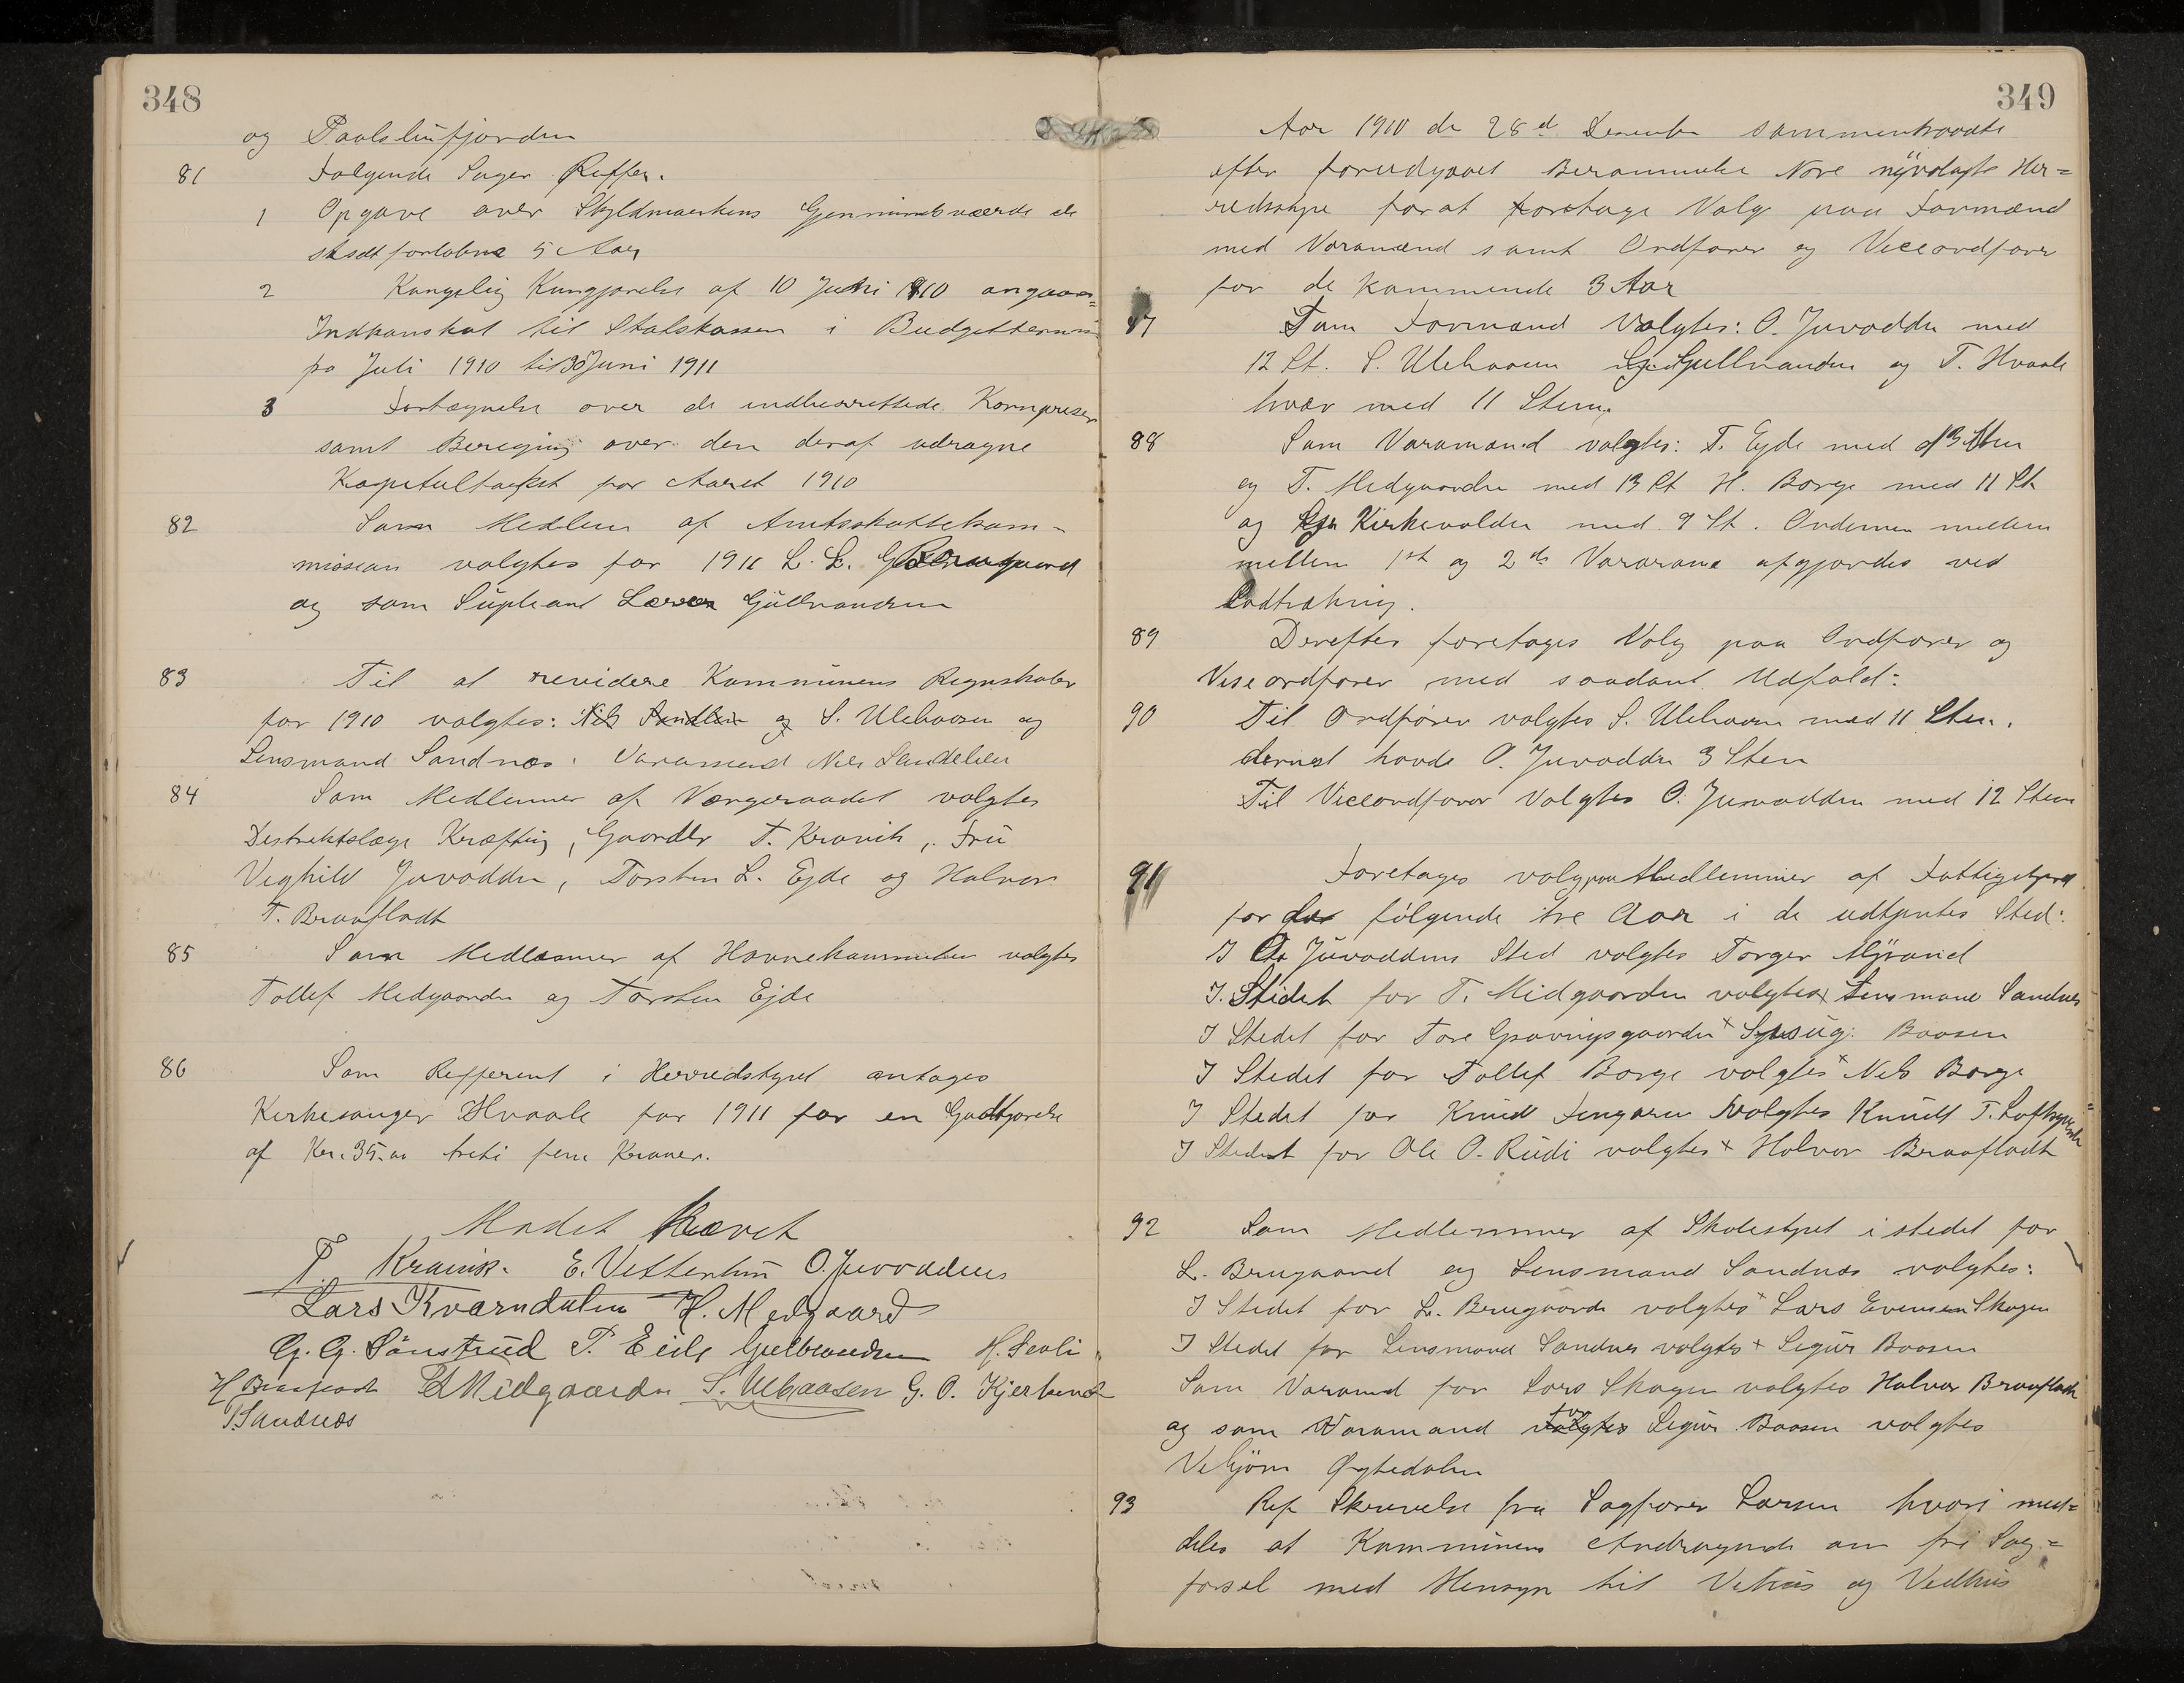 348
og Paalslinfjorden
81 Følgende Sager Reffer.
1 Opgave over Skyldmarkens Gjennimsnitsværde de
sidst forløbne 5 Aar
2 Kongelig Kungjørelse af 10 Juni 1910 angaaen=
Indkomskat til Statskassen i Budgettermin
fra Juli 1910 til 30 Juni 1911
3 Fortegnelse over de indberettede Kornpriser
samt Beregning over den deraf udragne
Kapitultakst for Aaret 1910
82 Som Medlem af Amtsskattekom-
mission valgtes for 1911 L. L. Brugaard
og som Supleant Gulbrandsen
83 Til at revidere Kommunens Regnskaber
for 1910 valgtes: Nils Sandlien og S. Ulehaasen og
Lensmand Sandnæs. Varamand Nils Sandelien
84 Som Medlemmer af Værgeraadet valgtes
Destriktslæge Kræfting, Gaardbr T. Kravik, Frü
Veghild Juvodden, Torsten L. Ejde og Halvor
T. Braafladt
85 Som Medlemmer af Havnekommiteen valgtes
Tollef Medgaarden og Torsten Ejde
86 Som Refferent i Herredstyret antages
Kirkesanger Hvaale for 1911 for en Godtgjørelse
af Kr. 35.00 treti fem Kroner.
Mødet hævet
T. Kravik. E. Vetterhus O. Juvodden
Lars Kværndalen H. Medgaard
G. G. Sønsterud T. Eide Gulbrandsen H. Seoli
H Braafladt T Midgaarden S. Ulhaasen G. O. Kjerland
P. Sandnæs
349
Aar 1910 de 28de Desember sammentraadte
efter forudgaaet Berammelse Nore nyvalgte Her=
redsstyre for at foretage Valg paa Formænd
med Varamænd samt Ordfører og Viceordfører
for de kommende 3 Aar
87 Som Formænd valgtes: O. Juvodden med
12 St. S. Ulehaasen Gulbrandsen og T. Hvaale
hver med 11 Stem.
88 Som Varamænd valgtes: T. Ejde med 13 Stem
og T. Medgaarden med 13 St H. Borge med 11 St
og Kirkevolden med 9 St. Ordenen mellem
mellem 1st og 2de Vararane afgjordes ved
Lodtrækning.
89 Derefter foretages Valg paa Ordfører og
Viseordfører med saadant Udfald:
90 Til Ordfører valgtes S. Ulehaasen med 11 Stem.
dernest havde O. Juvodden 3 Stem
Til Viceordfører valgtes O. Juvodden med 12 Stem
91 Foretages valg paa Medlemmer af Fattigstyret
for de følgende tre Aar i de udtrædtes Sted:
I O. Juvoddens Sted valgtes Torger Myrand
I Stedet for T. Midgaarden valgtes x Lensmand Sandnes
I Stedet for Tore Gravningsgaarden x Sigurd Baasen
I Stedet for Tollef Borge valgtes x Nels Borge
I Stedet for Knud valgtes Knudt T. Loftsgaarden
I Stedet for Ole O. Rudi valgtes x Halvor Braafladt
92 Som Medlemmer af Skolestyret i stedet for
L. Brugaard og Lensmand Sandnæs valgtes:
I Stedet for L. Brugaarde valgtes x Lars Evensen Skogen
I Stedet for Lensmand Sandnes valgtes x Sigur Baasen
Som Varamd for Lars Skogen valgtes Halvor Braafladt
og som Varamand for valgtes Sigur Baasen valgtes
Vebjörn Øygtedalen
93 Ref Skrivelse fra Sagfører Larsen hvori med=
deles at Kommunens Andragende om fri Sag=
førsel med Hensyn til Vehus og Vedhus